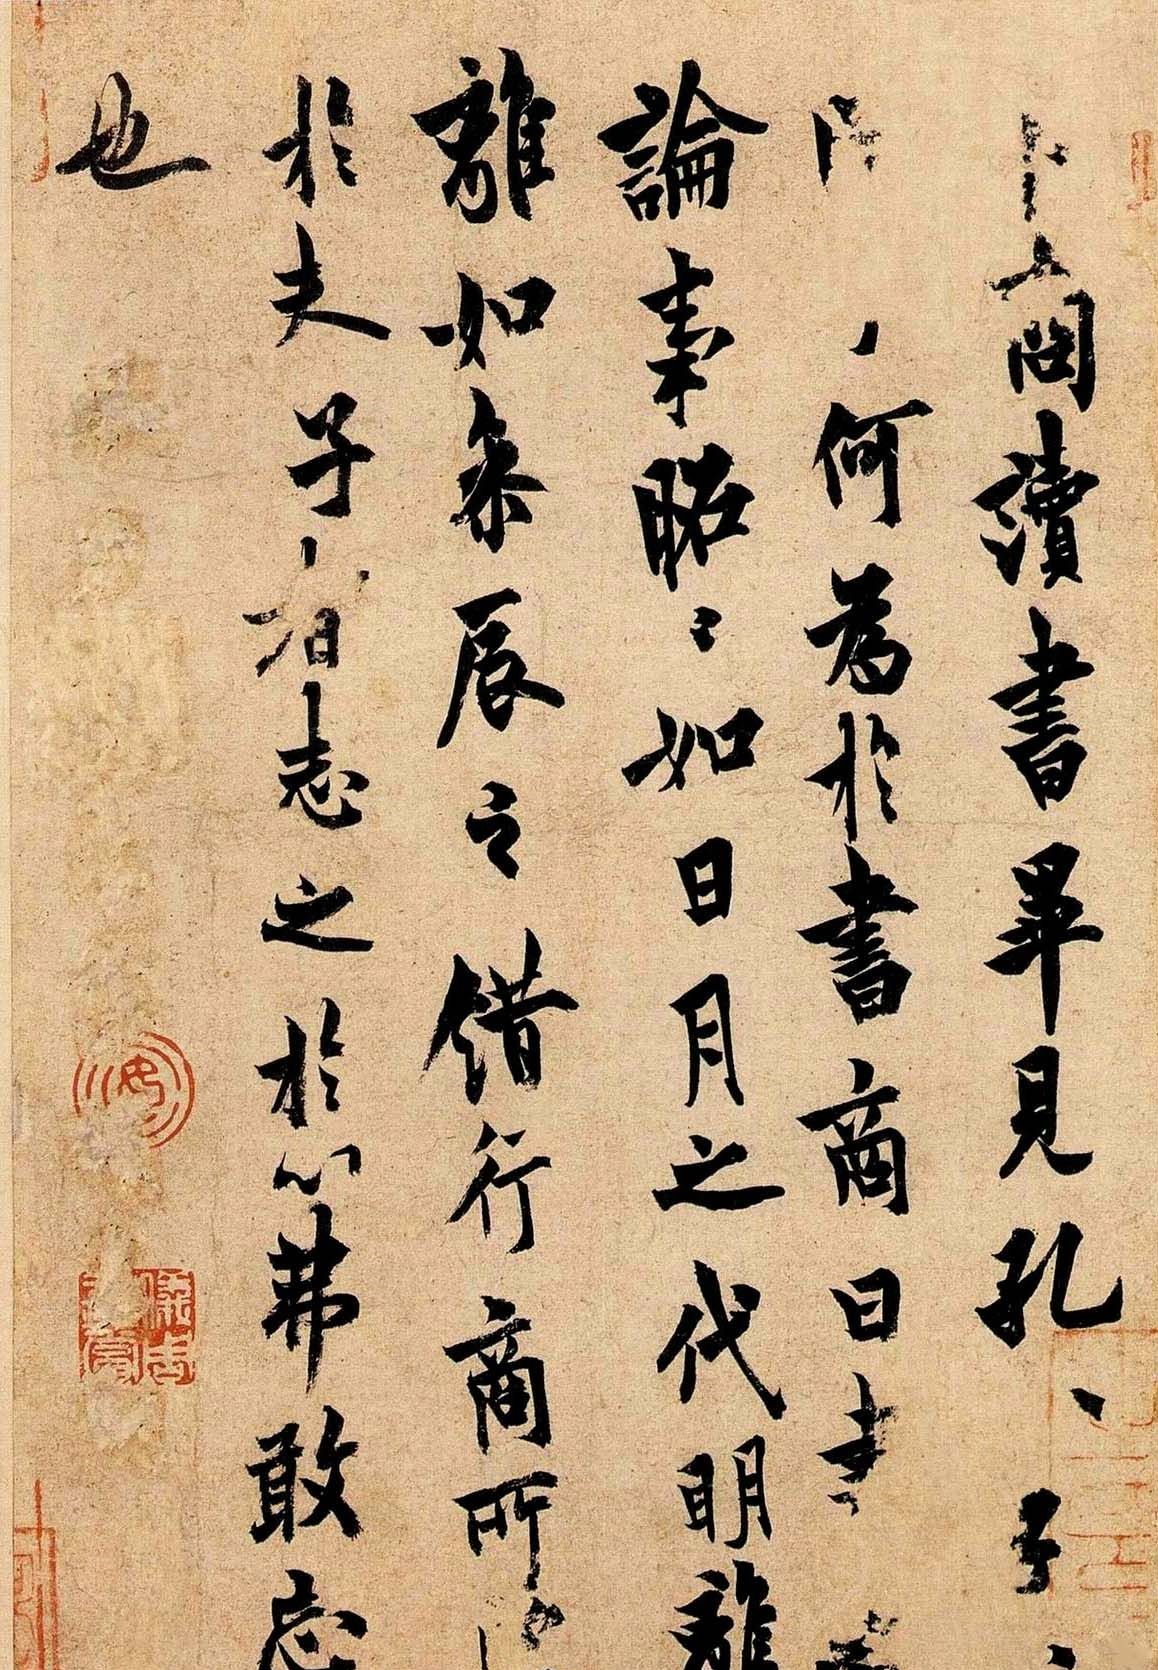 卜商讀書畢見孔子
何爲於書商曰書
論事昭〻如日月之代明離
離如參辰之錯行商所
於夫子者志之於心弗敢忘
也